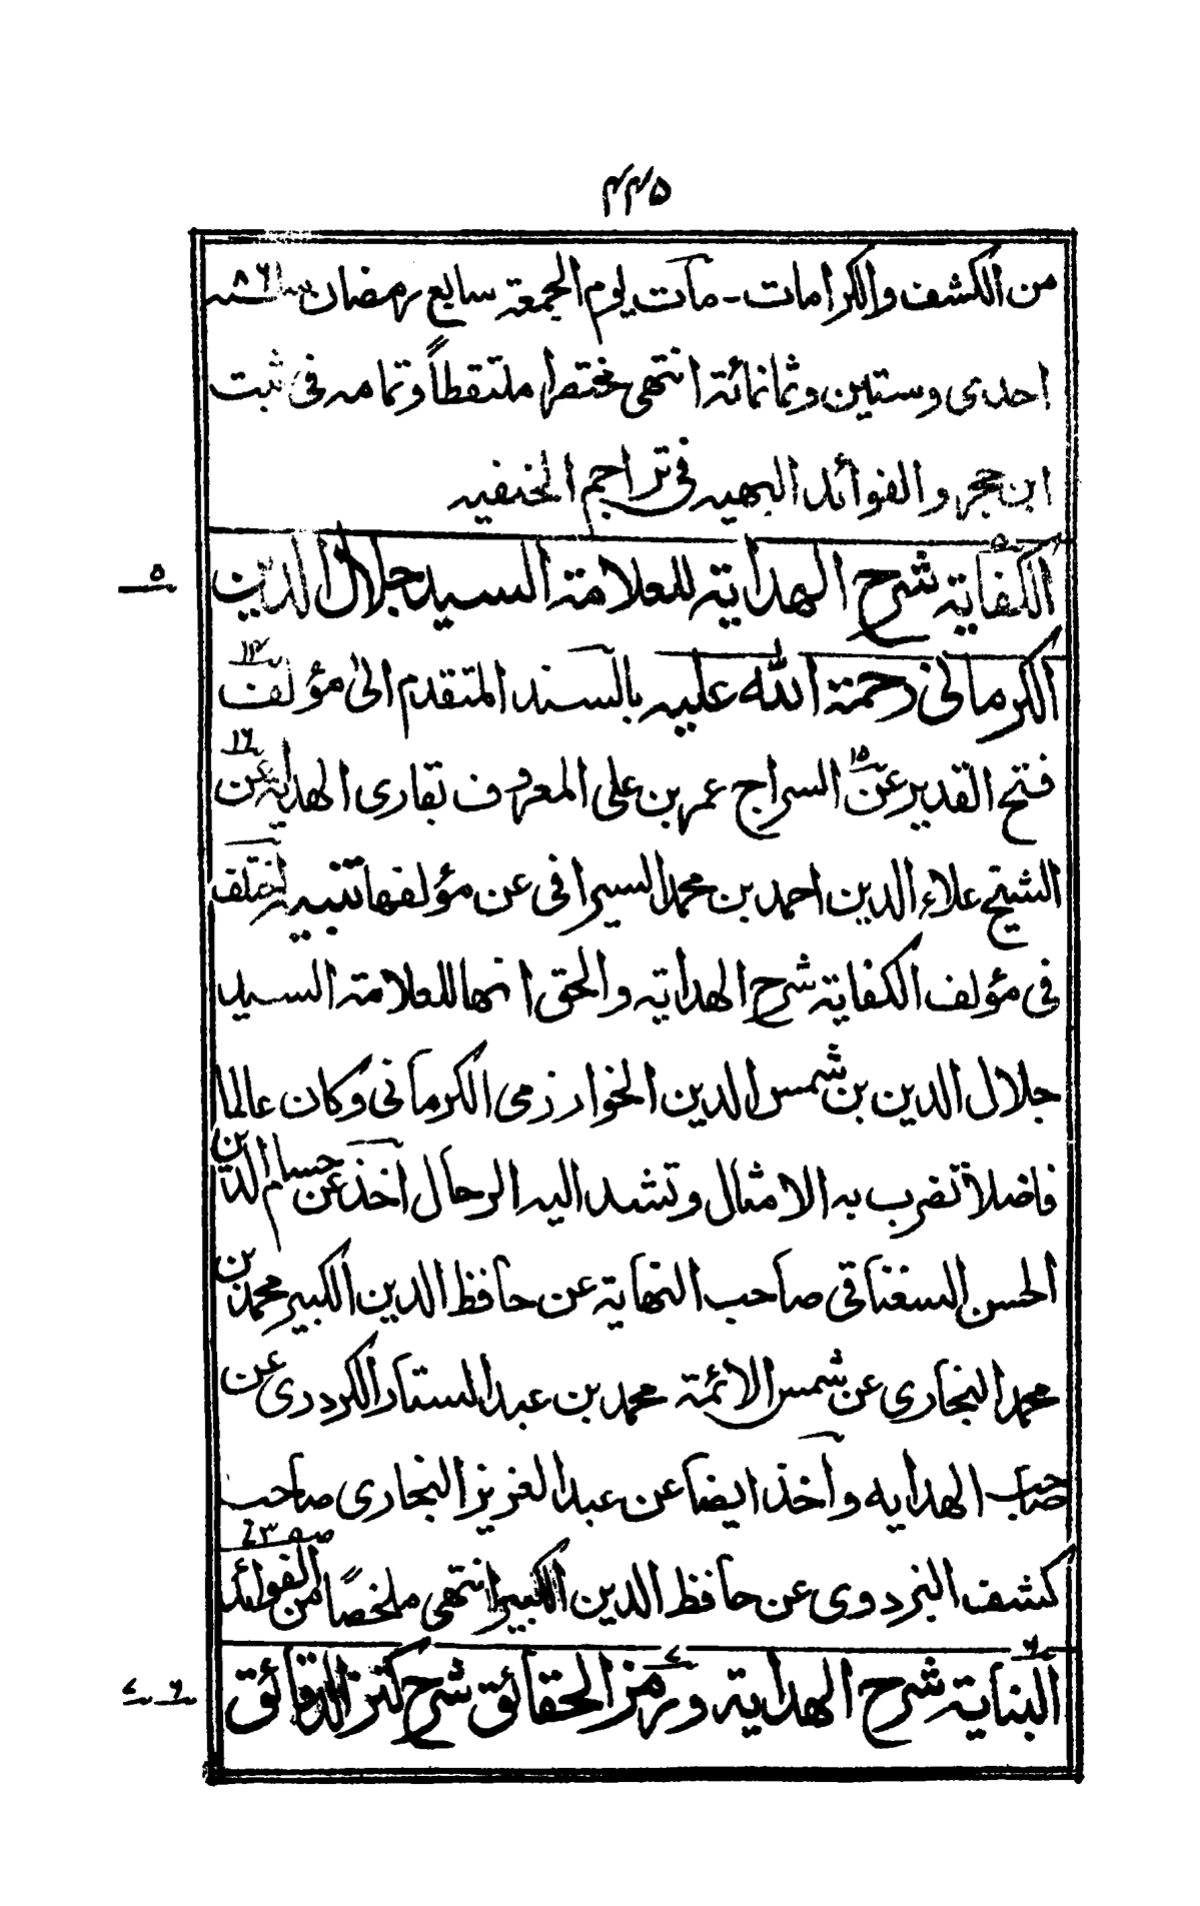 ۴۴۵
من الكشف والكرامات - مات يوم الجمعة سابع رمضان سنة ٨٦١
احدى وستين وثمانمائة انتهى مختصرا ملتقطاً وتمامه فى ثبت
ابن حجر و الفوائد البهيه فى تراجم الحنفيه
٥ الكفاية شرح الهداية للعلامة السيد جلال الدين
الكرمانى رحمة الله عليه بالسند المتقدم الىٰ مؤلف ١٤
فتح القدير عن ١٥ السراج عمر بن على المعروف بقارى الهداية عن ١٦
الشيخ علاء الدين احمد بن محمد السيرافى عن مؤلفها تنبيه اختلف
فى مؤلف الكفاية شرح الهداية والحق انها للعلامة السيد
جلال الدين بن شمس الدين الخوارزمى الكرمانى وكان عالما
فاضلا تضرب به الامثال وتشد اليه الرحال اخذ عن حسام الدين
الحسن السغناقى صاحب النهاية عن حافظ الدين الكبير محمد بن
محمد البخارى عن شمس الائمة محمد بن عبد الستار الكردرى عن
صاحب الهدايه واخذ ايضا عن عبد العزيز البخارى صاحب
كشف البزدوى عن حافظ الدين الكبير انتهى ملخصًا من الفوائد
٦ ٧ البناية شرح الهداية ورمز الحقائق شرح كنز الدقائق